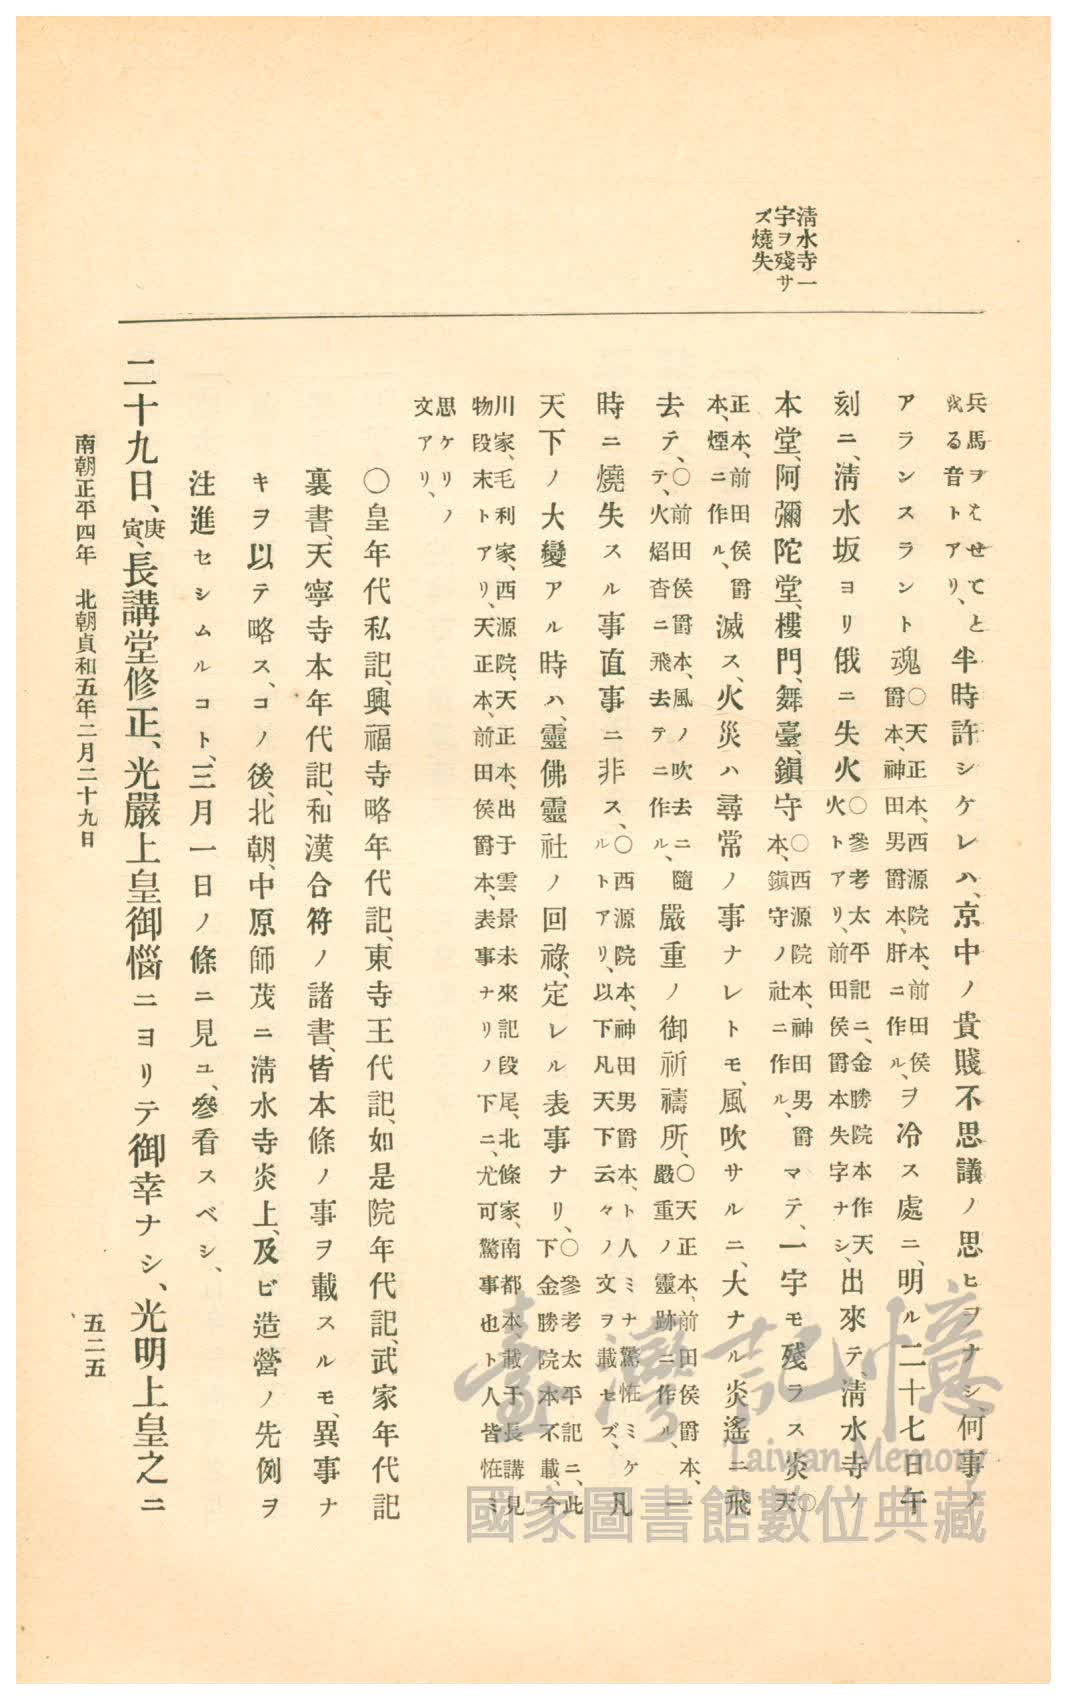 清水寺一
宇ヲ殘サ
ズ燒失
兵馬ヲはせてと
戎る音トアリ、
半時許シケレハ、京中ノ貴賤不思議ノ思ヒヲナシ、何事ノ
アランスラント魂
○天正本、西源院本、前田侯
爵本、神田男爵本、肝ニ作ル、
ヲ冷ス處ニ、明ル二十七日午
刻ニ、清水坂ヨリ俄ニ失火
○參考太平記ニ、金勝院本作天
火トアリ、前田侯爵本失字ナシ、
出來テ、清水寺ノ
本堂、阿彌陀堂、樓門、舞臺、鎭守
○西源院本、神田男爵
本、鎭守ノ社ニ作ル、
マテ、一宇モ殘ラス炎
○天
正本、前田侯爵
本、煙ニ作ル、
滅ス、火災ハ尋常ノ事ナレトモ、風吹サルニ、大ナル炎遙ニ飛
去テ、
○前田侯爵本、風ノ吹去ニ隨
テ、火焰沓ニ飛去テニ作ル、
嚴重ノ御祈禱所、
○天正本、前田侯爵本、
嚴重ノ靈跡ニ作ル、
一
時ニ燒失スル事直事ニ非ス、
○西源院本、神田男爵本、ト人ミナ驚恠ミケ
ルトアリ、以下凡天下云々ノ文ヲ載セズ、
凡
天下ノ大變アル時ハ、靈佛靈社ノ回祿、定レル表事ナリ、
○參考太平記ニ、此
下金勝院本不載、今
川家、毛利家、西源院、天正本、出于雲景未來記段尾、北條家、南都本載于長講見
物段末トアリ、天正本、前田侯爵本、表事ナリノ下ニ、尤可驚事也ト人皆恠ミ
思ケリノ
文アリ、
○皇年代私記、興福寺略年代記、東寺王代記、如是院年代記、武家年代記
裏書、天寧寺本年代記、和漢合符ノ諸書、皆本條ノ事ヲ載スルモ、異事ナ
キヲ以テ略ス、コノ後、北朝、中原師茂ニ清水寺炎上、及ビ造營ノ先例ヲ
注進セシムルコト、三月一日ノ條ニ見ユ、參看スベシ、
二十九日、庚寅、長講堂修正、光嚴上皇御惱ニヨリテ御幸ナシ、光明上皇之ニ
南朝正平四年 北朝貞和五年二月二十九日
五二五
臺灣記憶
Taiwan Memory
國家圖書館數位典藏